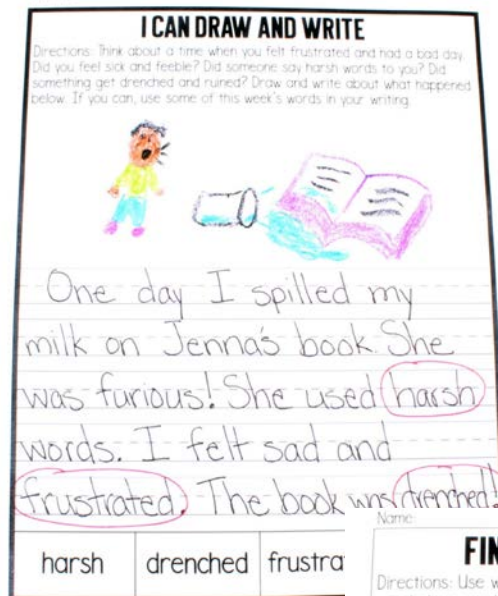 I CAN DRAW AND WRITE
Directions: Think about a time when you felt frustrated and had a bad day.
Did you feel sick and feeble? Did someone say harsh words to you? Did
something get drenched and ruined? Draw and write about what happened
below. If you can, use some of this week's words in your writing.
One day I spilled my
milk on Jenna's book. She
was furious! She used harsh
words. I felt sad and
frustrated. The book was drenched!
harsh drenched frustra
Name:
FIN
Directions: Use w